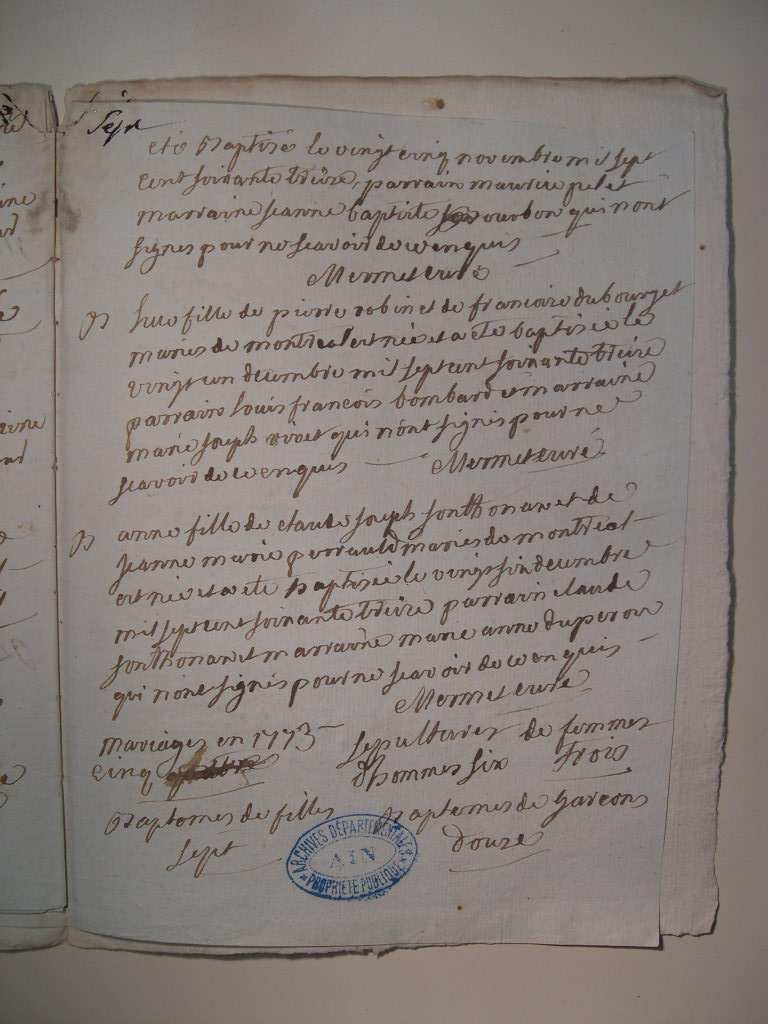 Sept
eté Baptisé le vingt cinq novembre mil sept
cent soixante treize, parrain maurice pelet
marraine jeanne baptiste bourbon qui n'ont
signes pour ne scavoir de ce enquis
Mermet curé
B
fille de pierre robin et de francoise dubourget
maries de montreal est née et a eté baptisée le
vingt un decembre mil sept cent soixante treize
parrain louis françois bombard et marraine
marie joseph vivet qui n'ont signés pour ne
scavoir de ce enquis Mermet curé
B
anne fille de claude joseph sonthonax et de
jeanne marie perrauld maries de montreal
est née et a eté baptisée le vingt six decembre
mil sept cent soixante treize parrain claude
sonthonax et marraine marie anne duperoir
qui n'ont signés pour ne scavoir de ce enquis
Mermet curé
mariages en 1773
cinq
Sepultures de femmes
d'hommes six Trois
Baptemes de filles
Sept
Baptemes de Garcons
douze
ARCHIVES DÉPARTEMENTALES
AIN
PROPRIÉTÉ PUBLIQUE